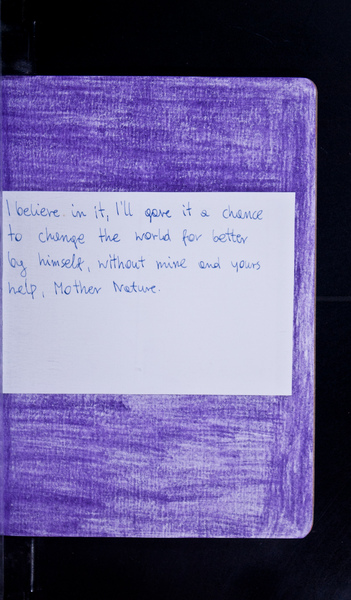 I believe in it, I'll gave it a chance
to change the world for better
by himself, without mine and yours
help, Mother Nature.